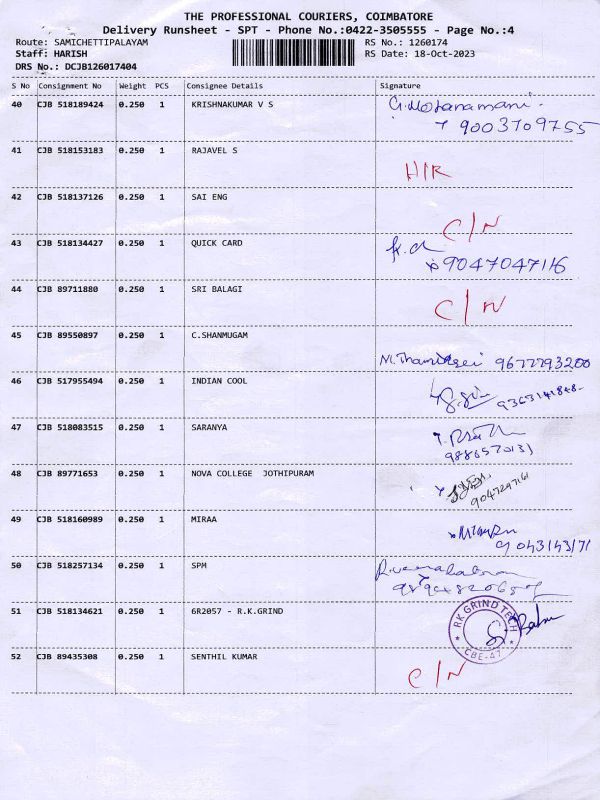 THE PROFESSIONAL COURIERS, COIMBATORE
Delivery Runsheet - SPT - Phone No.:0422-3505555 - Page No.:4
Route: SAMICHETTIPALAYAM RS No.: 1260174
Staff: HARISH RS Date: 18-Oct-2023
DRS No.: DCJB126017404
S No Consignment No Weight PCS Consignee Details Signature
40 CJB 518189424 0.250 1 KRISHNAKUMAR V S
9003709755
41 CJB 518153183 0.250 1 RAJAVEL S
H/R
42 CJB 518137126 0.250 1 SAI ENG
C/N
43 CJB 518134427 0.250 1 QUICK CARD
9047047116
44 CJB 89711880 0.250 1 SRI BALAGI
C/N
45 CJB 89550897 0.250 1 C.SHANMUGAM
9677793200
46 CJB 517955494 0.250 1 INDIAN COOL
47 CJB 518083515 0.250 1 SARANYA
48 CJB 89771653 0.250 1 NOVA COLLEGE JOTHIPURAM
49 CJB 518160989 0.250 1 MIRAA
9043143171
50 CJB 518257134 0.250 1 SPM
51 CJB 518134621 0.250 1 6R2057 - R.K.GRIND
RK GRIND TECH
CBE-47
52 CJB 89435308 0.250 1 SENTHIL KUMAR
C/N